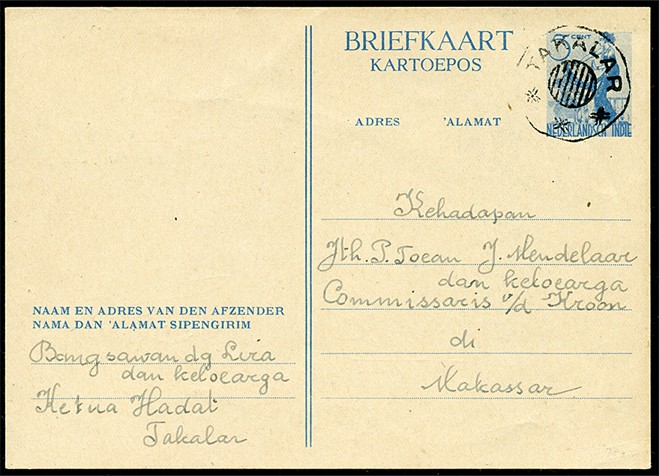 BRIEFKAART
KARTOEPOS
5 CENT
TAKALAR
NEDERLANDSCH INDIE
ADRES 'ALAMAT
Kehadapan
Jth. P. Toean J. Mendelaar
dan keloearga
Commissaris v/d Kroon
di
Makassar
NAAM EN ADRES VAN DEN AFZENDER
NAMA DAN 'ALAMAT SIPENGIRIM
Bangsawan dg Lira
dan keloearga
Ketua Hadat
Takalar